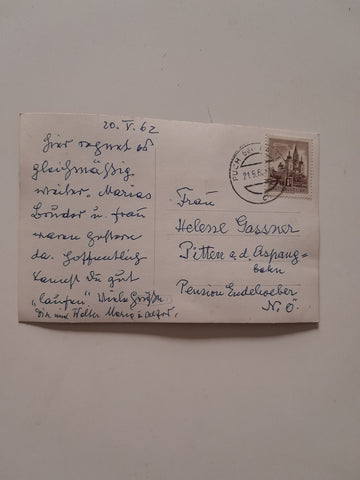 20. V. 62
Hier regnet es
gleichmäßig
weiter. Marias
Bruder u. Frau
waren gestern
da. Hoffentlich
kannst Du gut
"laufen". Viele Grüße
Dir und Walter Maria u. Alfred.
PUCH BEI
21.5.6
Frau
Helene Gassner
Pitten a. d. Aspang=
bahn
Pension Endelweber
N. Ö.